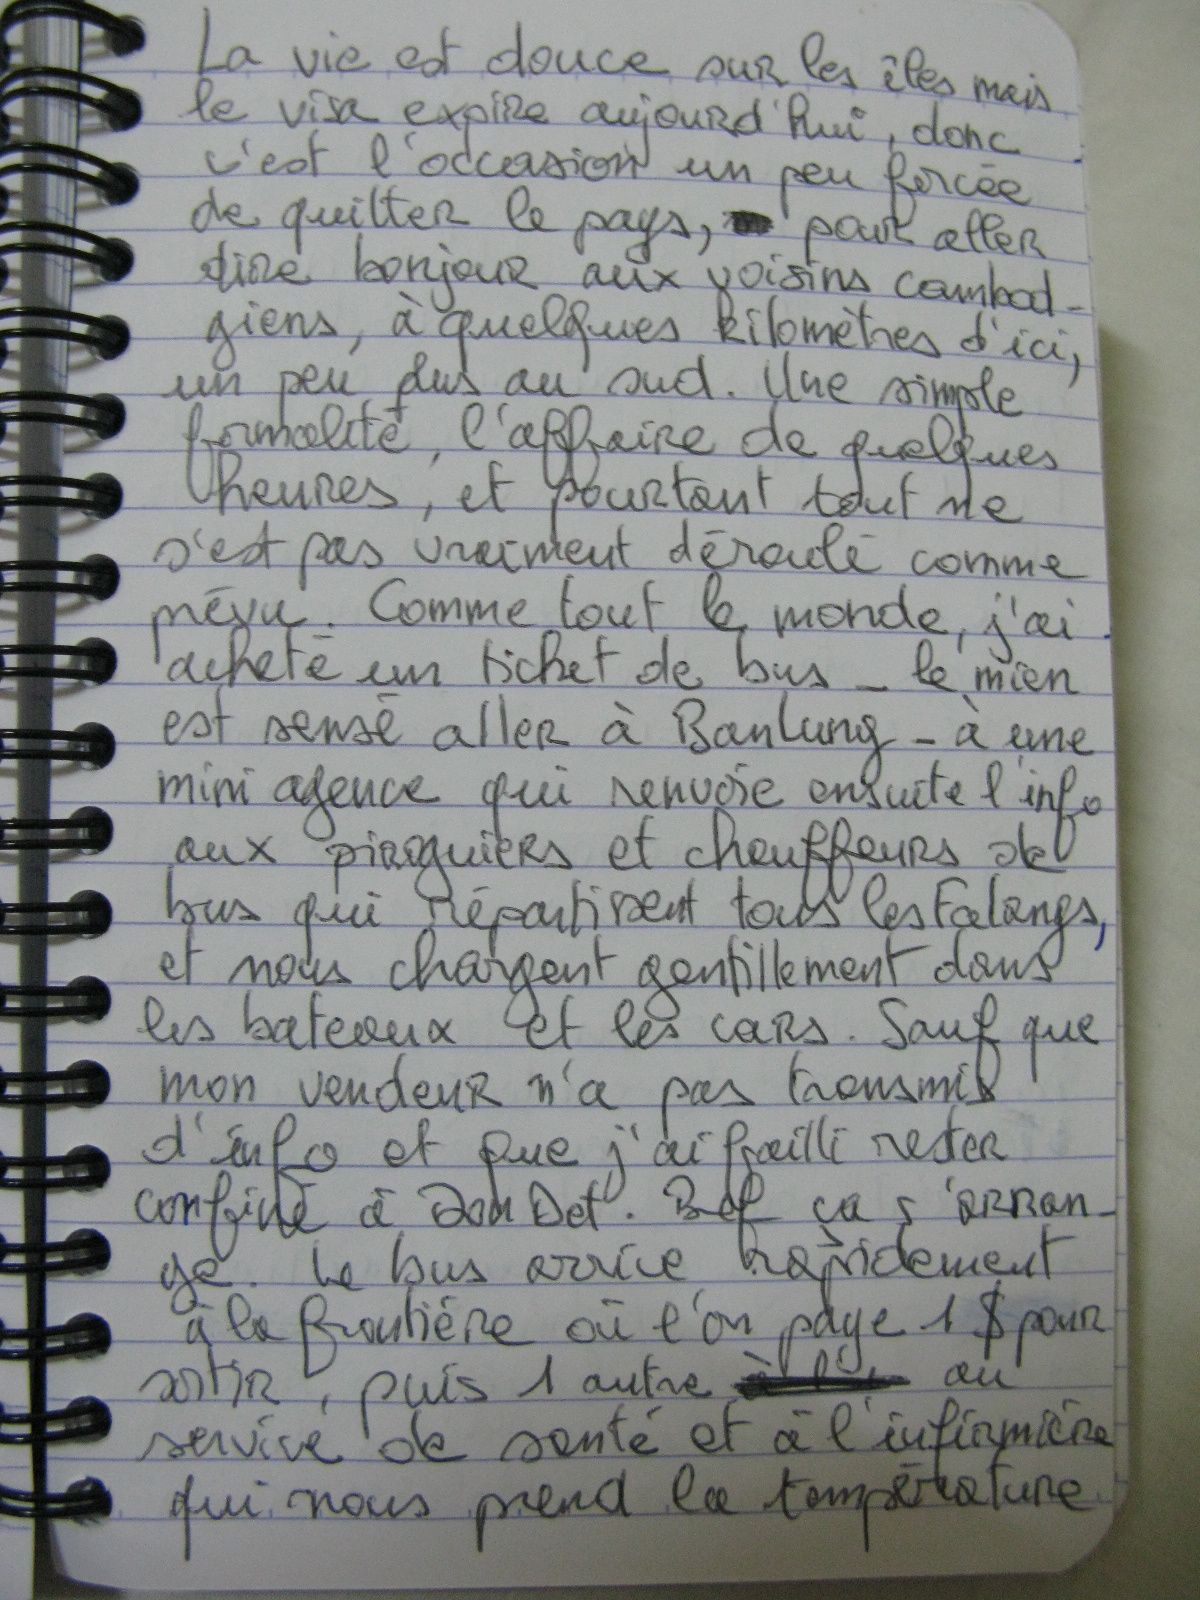 La vie est douce sur les îles mais
le visa expire aujourd'hui, donc
c'est l'occasion un peu forcée
de quitter le pays, pour aller
dire bonjour aux voisins cambod-
giens, à quelques kilomètres d'ici,
un peu plus au sud. Une simple
formalité, l'affaire de quelques
heures, et pourtant tout ne
s'est pas vraiment déroulé comme
prévu. Comme tout le monde, j'ai
acheté un ticket de bus - le mien
est sensé aller à BanLung - à une
mini agence qui renvoie ensuite l'info
aux piroguiers et chauffeurs de
bus qui répartissent tous les Falangs,
et nous chargent gentillement dans
les bateaux et les cars. Sauf que
mon vendeur n'a pas transmis
d'info et que j'ai failli rester
confiné à Don Det. Bref ça s'arran-
ge. Le bus arrive rapidement
à la frontière où l'on paye 1 $ pour
sortir, puis 1 autre au
service de santé et à l'infirmière
qui nous prend la température